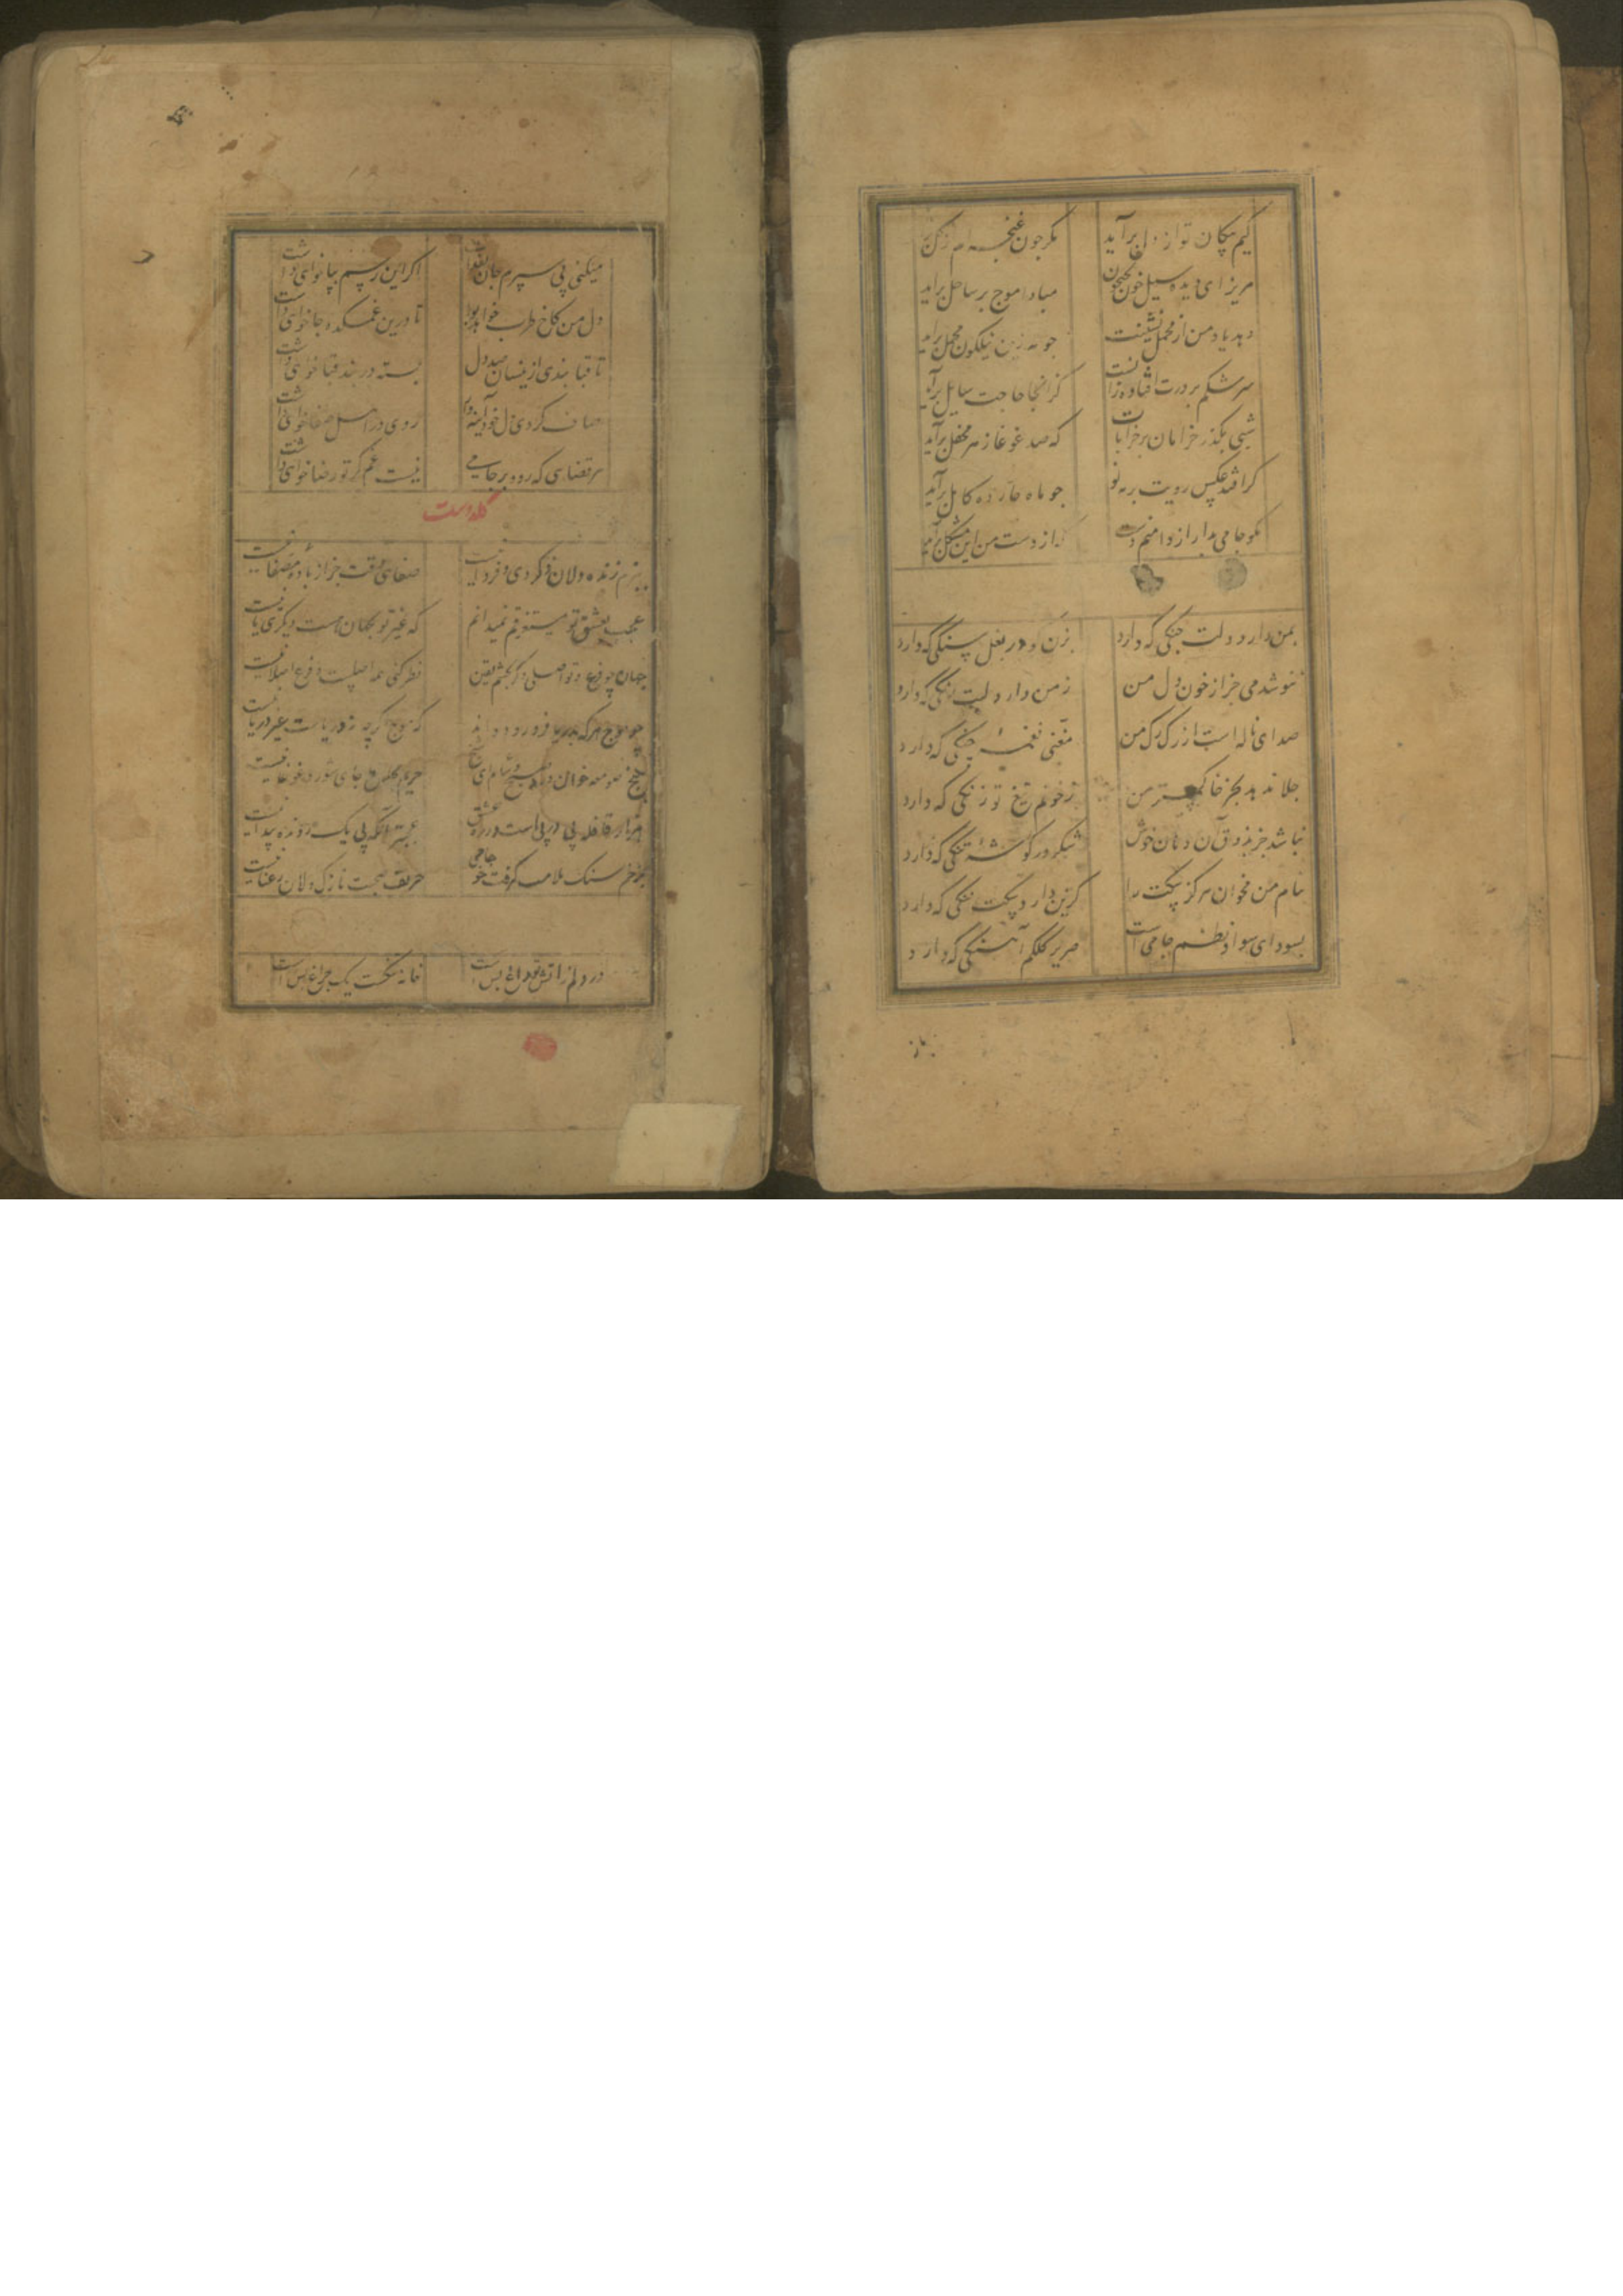 کیم پیکان تو از دل برآید مکر چون غنچه از کل
مریز ای دیده سیل خون بجیحون مبادا موج بر ساحل برآید
دهد یاد من از محمل نشینت چو مه زین نیلکون محمل برآید
سرشکم بر درت افتاده زانست کز انجا حاجت سایل برآید
شبی بکذر خرامان بر خرابات که صد غوغا ز هر محفل برآید
کر افتد عکس رویت بر مه نو چو ماه چارده کامل برآید
مکو جامی بدار از دامنم دست از دست من این مشکل برآید
بمن دارد دلت جنکی که دارد بزن در بغل سنکی که دارد
ننوشد می جز از خون دل من ز من دارد لبت رنکی که دارد
صدای ناله است از رک رک من مغنی نغمه چنکی که دارد
جلا ندهد بجز خاکستر من ز خونم تیغ تو زنکی که دارد
نباشد جز بذوق آن دهان خوش شکر در کوشه تنکی که دارد
بنام من مخوان هرکز سکت را کزین دارد سکت ننکی که دارد
بسودای سواد نظم جامی است صریر کلکم آهنکی که دارد
میکنی پی سپرم جان اکر این رسم بپا خواهی داشت
دل من کاخ طرب خواهد بود تا درین غمکده جا خواهی داشت
تا قبا بندی ازینسان صد دل بسته در بند قبا خواهی داشت
صاف کردی دل خود آینه‌وار روی در اصل صفا خواهی داشت
هر قضایی که رود بر جامی نیست غم کر تو رضا خواهی داشت
ببزم زنده دلان ذکر دی و فردا نیست صفای وقت جز از باده مصفا نیست
عجب بعشق تو مستغرقم نمیدانم که غیر تو بجهان هست دیکری یا نیست
جهان چو فرع و تو اصلی و کر بچشم یقین نظر کنی همه اصلست و فرع اصلا نیست
چو موج هر که بدریا فرو رود داند که موج کرچه نه دریاست غیر دریا نیست
حریم جای شور و غوغا نیست
هزار قافله پی در پی است در ره عشق عجبتر آنکه پی یک رونده پیدا نیست
بزخم سنک ملامت کرفت خو جامی حریف صحبت نازک دلان رعنا نیست
در دلم ز آتش تو داغ بس است خانه تنکست یک چراغ بس است